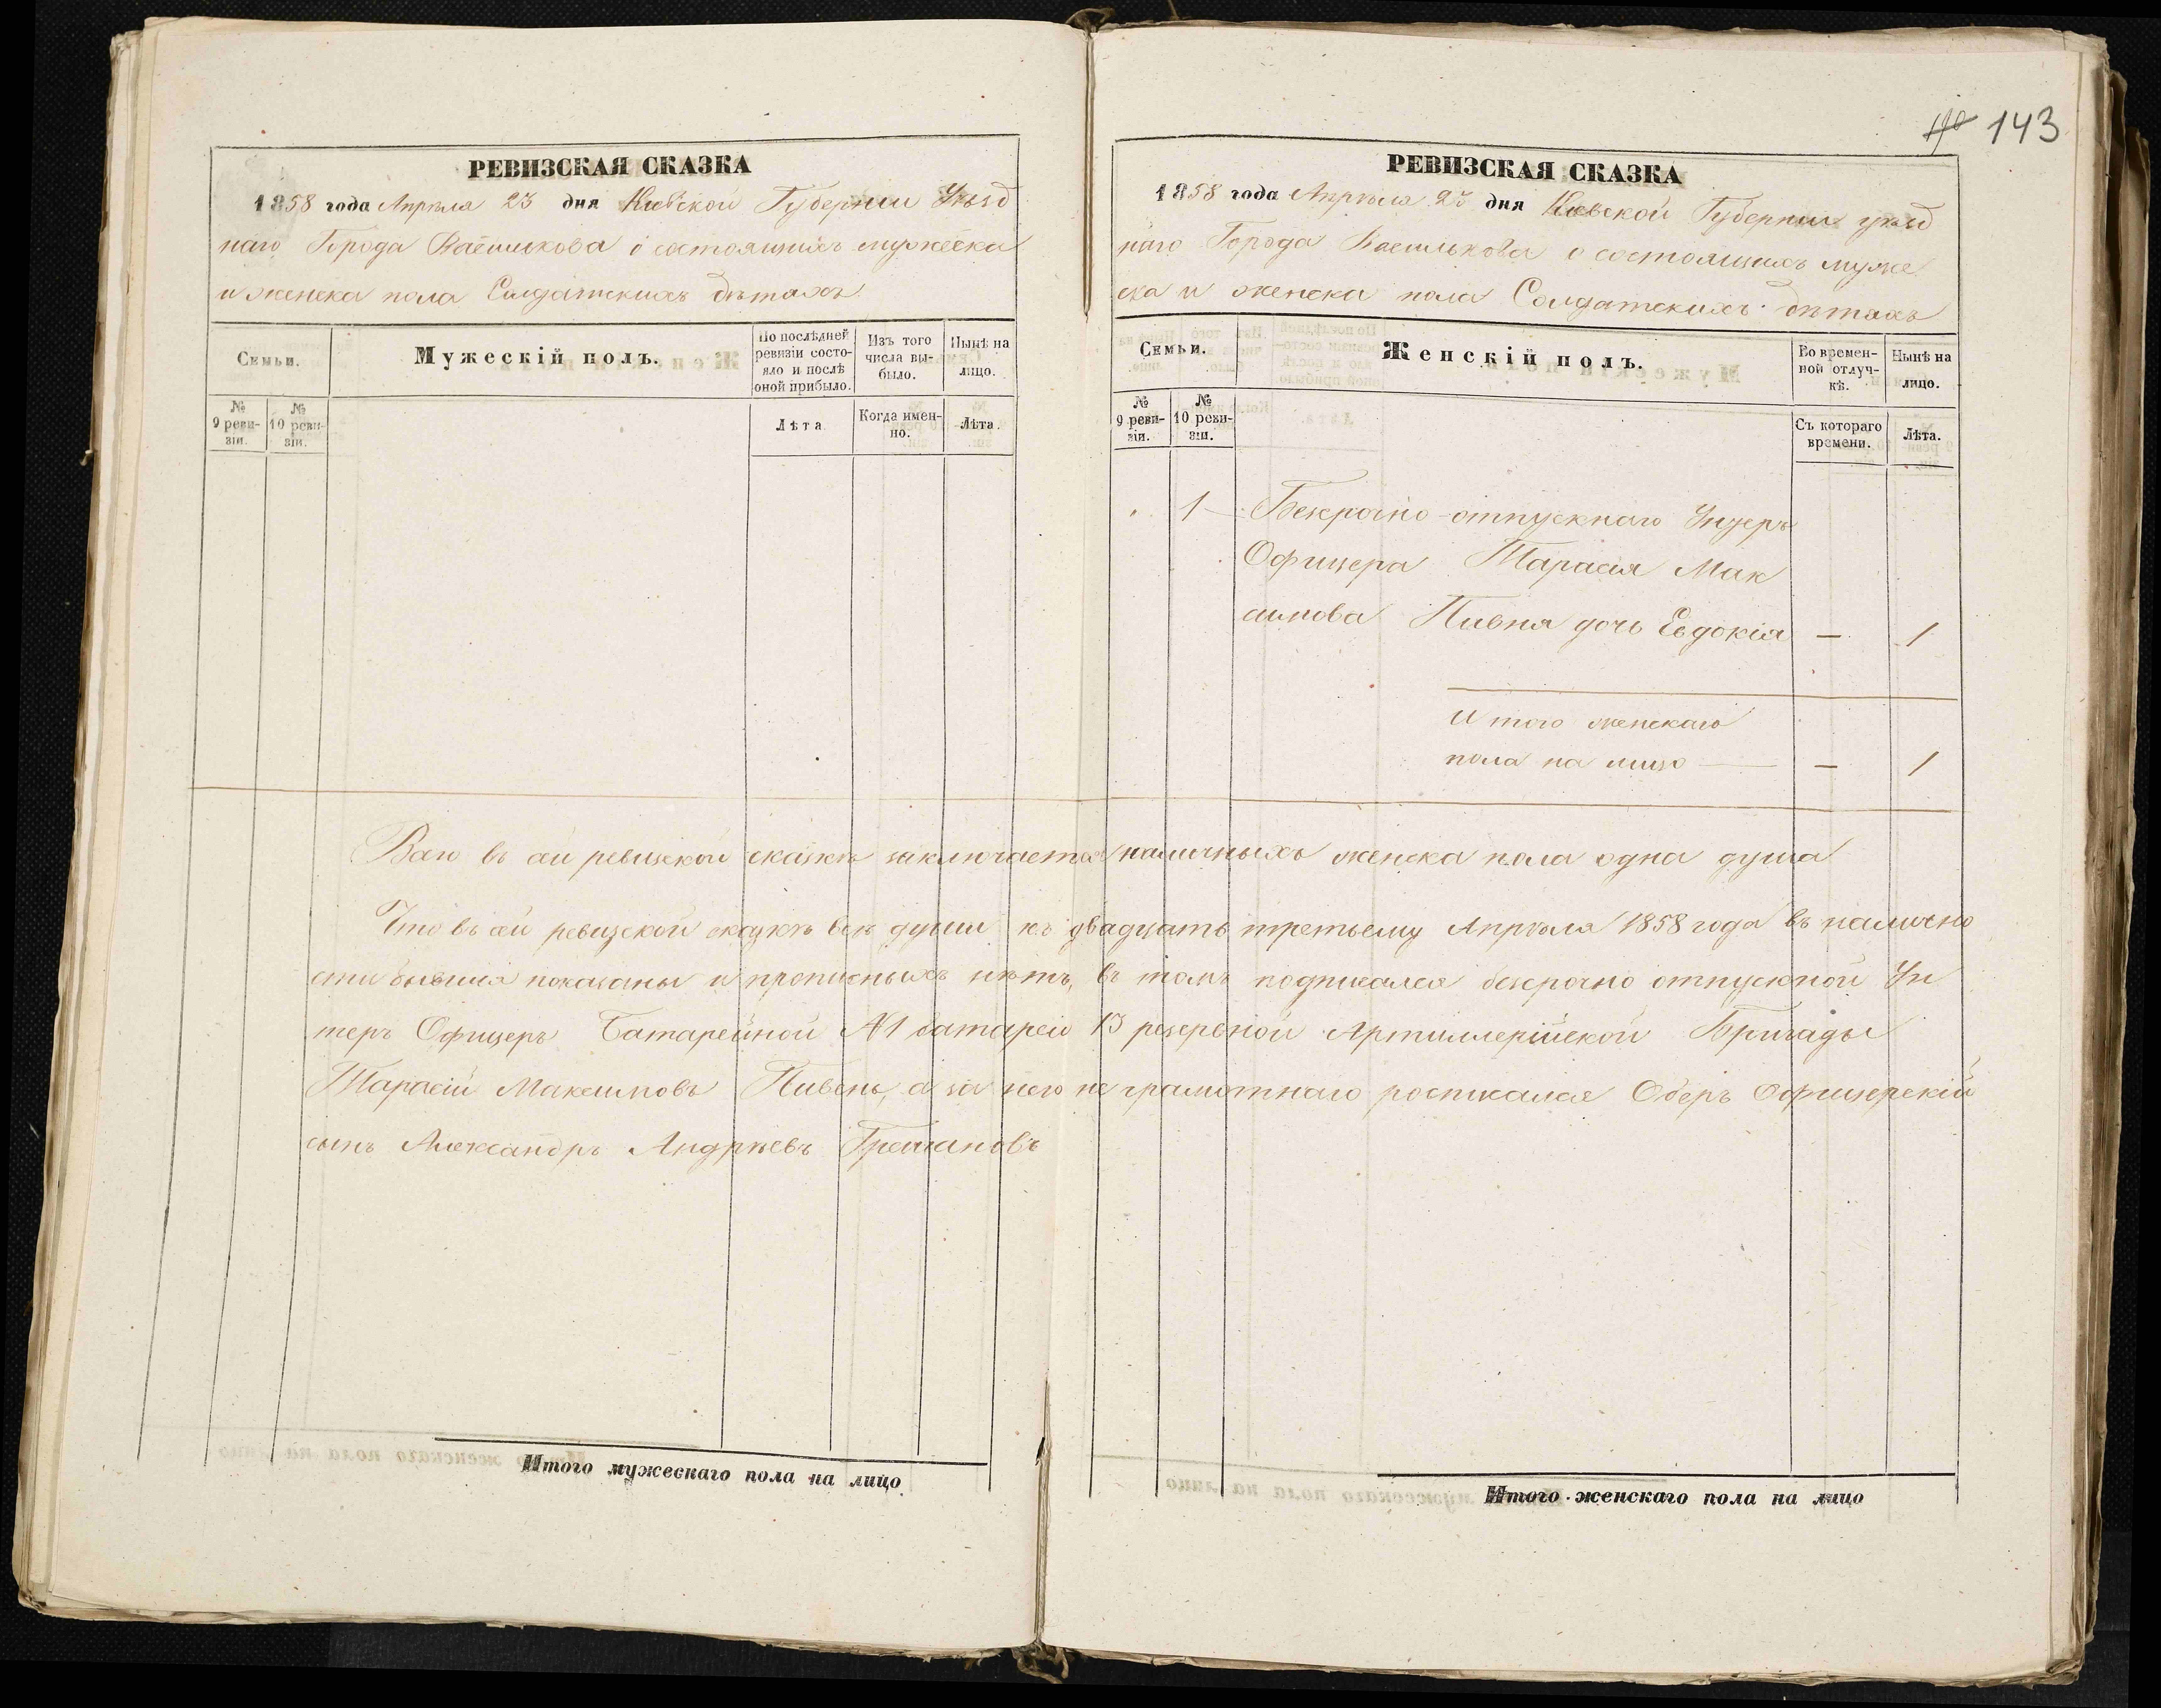 РЕВИЗСКАЯ СКАЗКА
1858 года Апрѣля 23 дня Кіевской Губерніи Уѣзд
наго Города Василькова о состоящихъ мужеска
и женска пола Солдатскихъ дѣтяхъ
Семьи.
Мужескій полъ.
По послѣдней ревизіи состояло и послѣ оной прибыло.
Изъ того числа выбыло.
Нынѣ на лицо.
№ 9 ревизіи.
№ 10 ревизіи.
Лѣта
Когда именно.
Лѣта.
Итого мужескаго пола на лицо
110 143
РЕВИЗСКАЯ СКАЗКА
1858 года Апрѣля 23 дня Кіевской Губерніи уѣзд
наго Города Василькова о состоящихъ муже
ска и женска пола Солдатскихъ дѣтяхъ
Семьи.
Женскій полъ.
Во временной отлучкѣ.
Нынѣ на лицо.
№ 9 ревизіи.
№ 10 ревизіи.
Съ котораго времени.
Лѣта.
1 Безсрочно-отпускнаго Унтеръ
Офицера Тарасія Мак
симова Пивня дочь Евдокія — 1
Итого женскаго
пола на лицо — — 1
Всего въ сей ревизской сказкѣ заключается наличныхъ женска пола одна душа
Что въ сей ревизской сказкѣ всѣ души къ двадцать третьему Апрѣля 1858 года въ налично
сти бывшія показаны и прописныхъ нѣтъ, въ томъ подписался безсрочно отпускной Ун
теръ Офицеръ Батарейной №1 батареи 13 резервной Артиллерійской Бригады
Тарасій Максимовъ Пивень, а за него не грамотнаго росписался Оберъ Офицерскій
сынъ Александръ Андрѣевъ
Итого женскаго пола на лицо